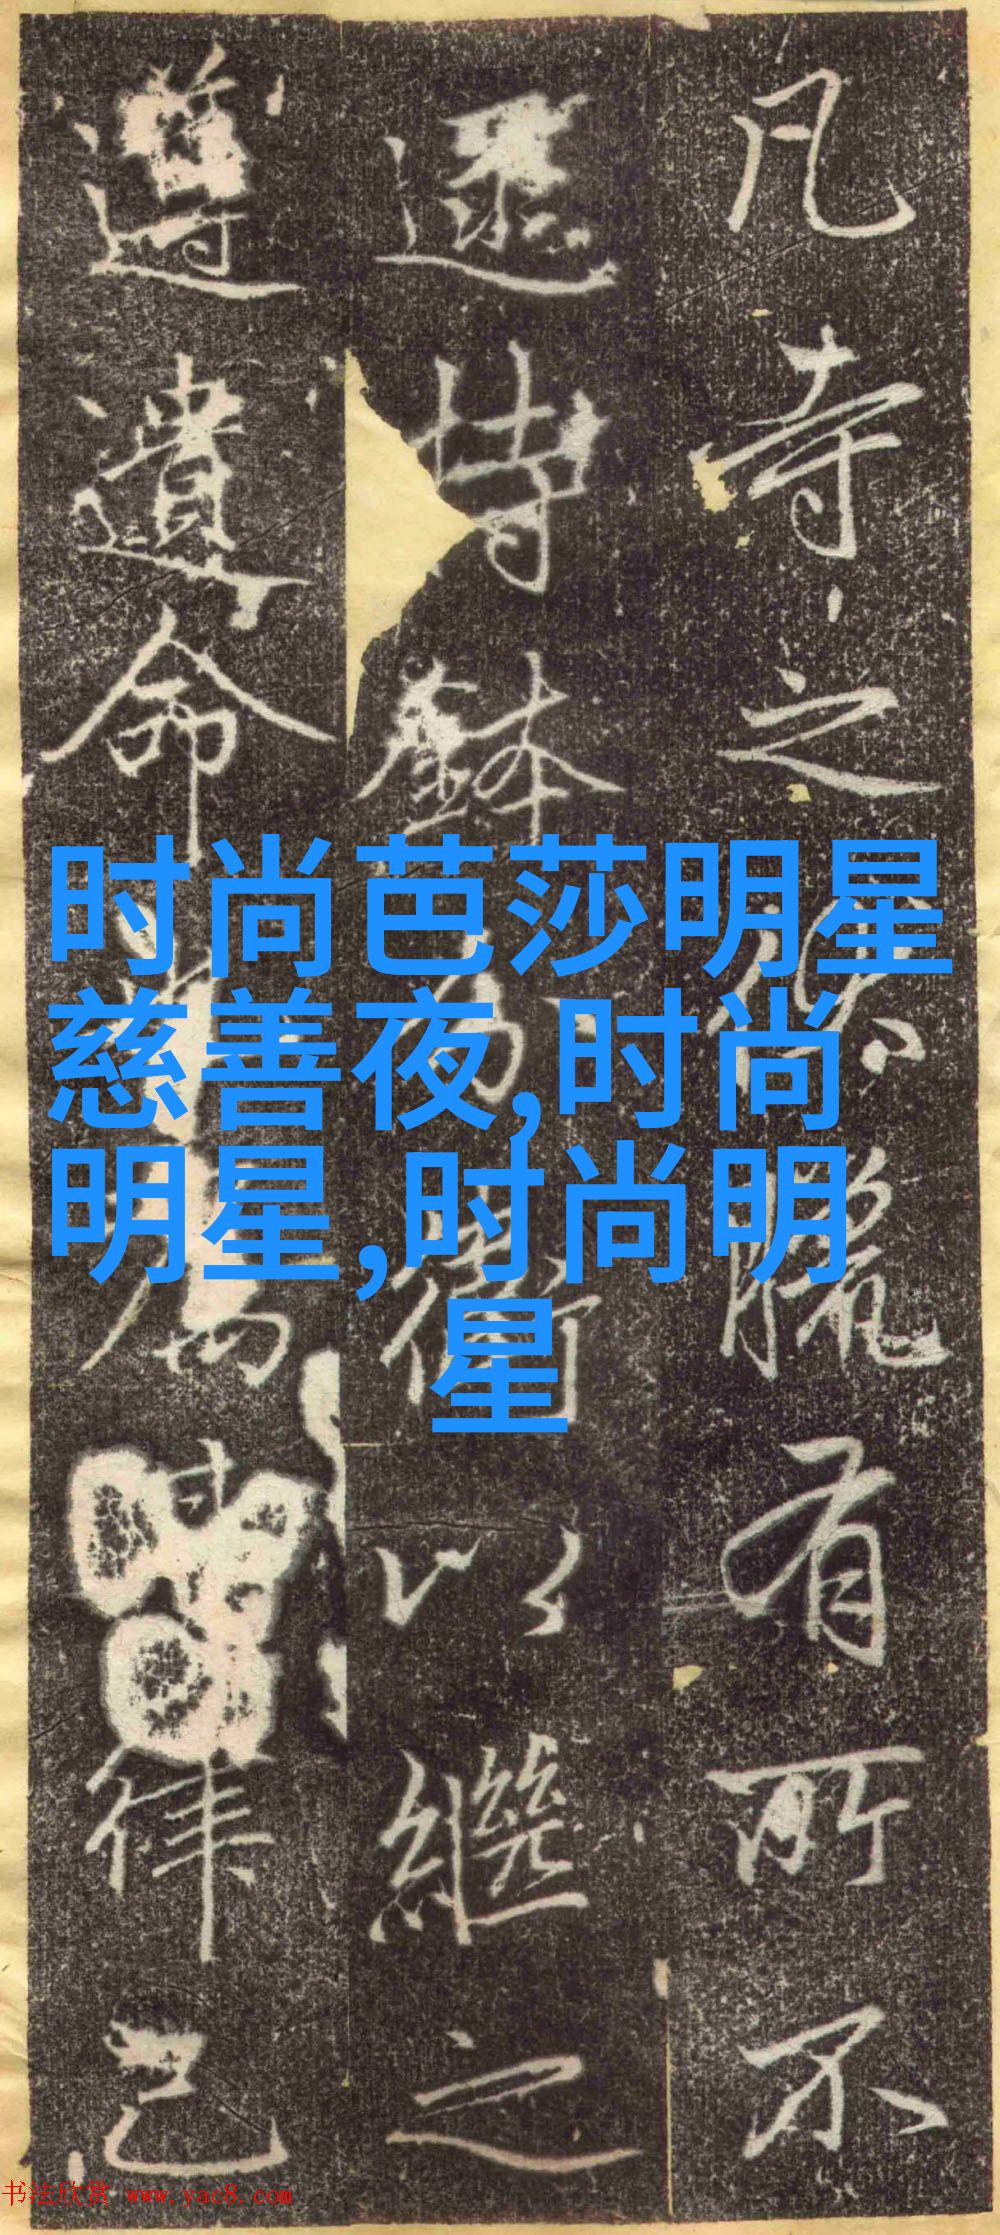 凡寺之
臘有所不
還持鉢
以繼之
遵遺命
律己
时尚芭莎明星
慈善夜,时尚
明星,时尚明
星
书法欣赏 www.yac8.com